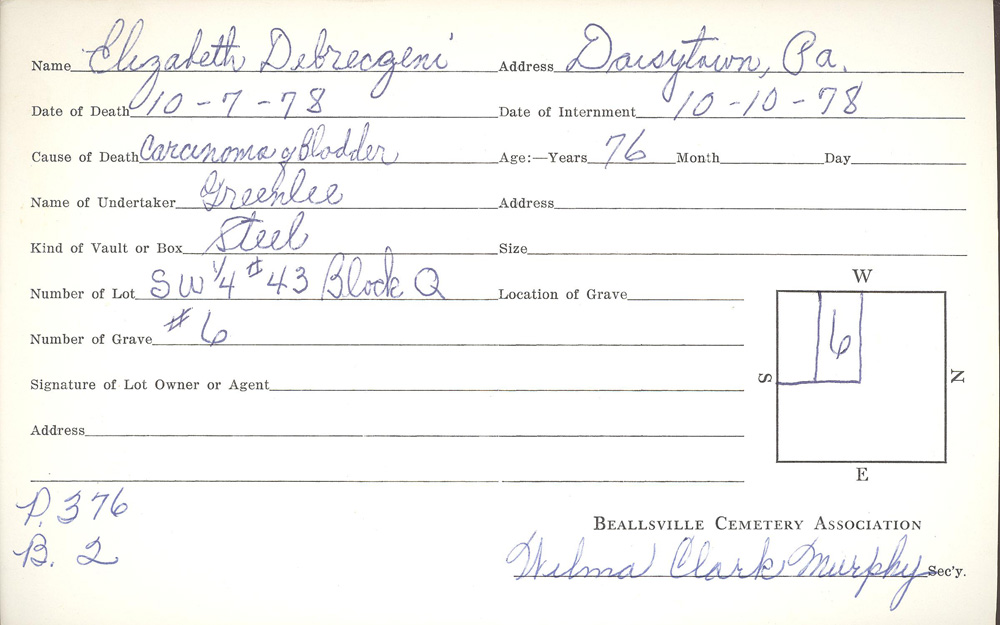 Name Elizabeth Debreczeni Address Daisytown, Pa.
Date of Death 10-7-78 Date of Internment 10-10-78
Cause of Death Carcinoma of Bladder Age:—Years 76 Month Day
Name of Undertaker Greenlee Address
Kind of Vault or Box Steel Size
Number of Lot SW 1/4 #43 Block Q Location of Grave
W
Number of Grave #6
6
S N
Signature of Lot Owner or Agent
Address
E
P. 376
B. 2
BEALLSVILLE CEMETERY ASSOCIATION
Wilma Clark Murphy Sec'y.